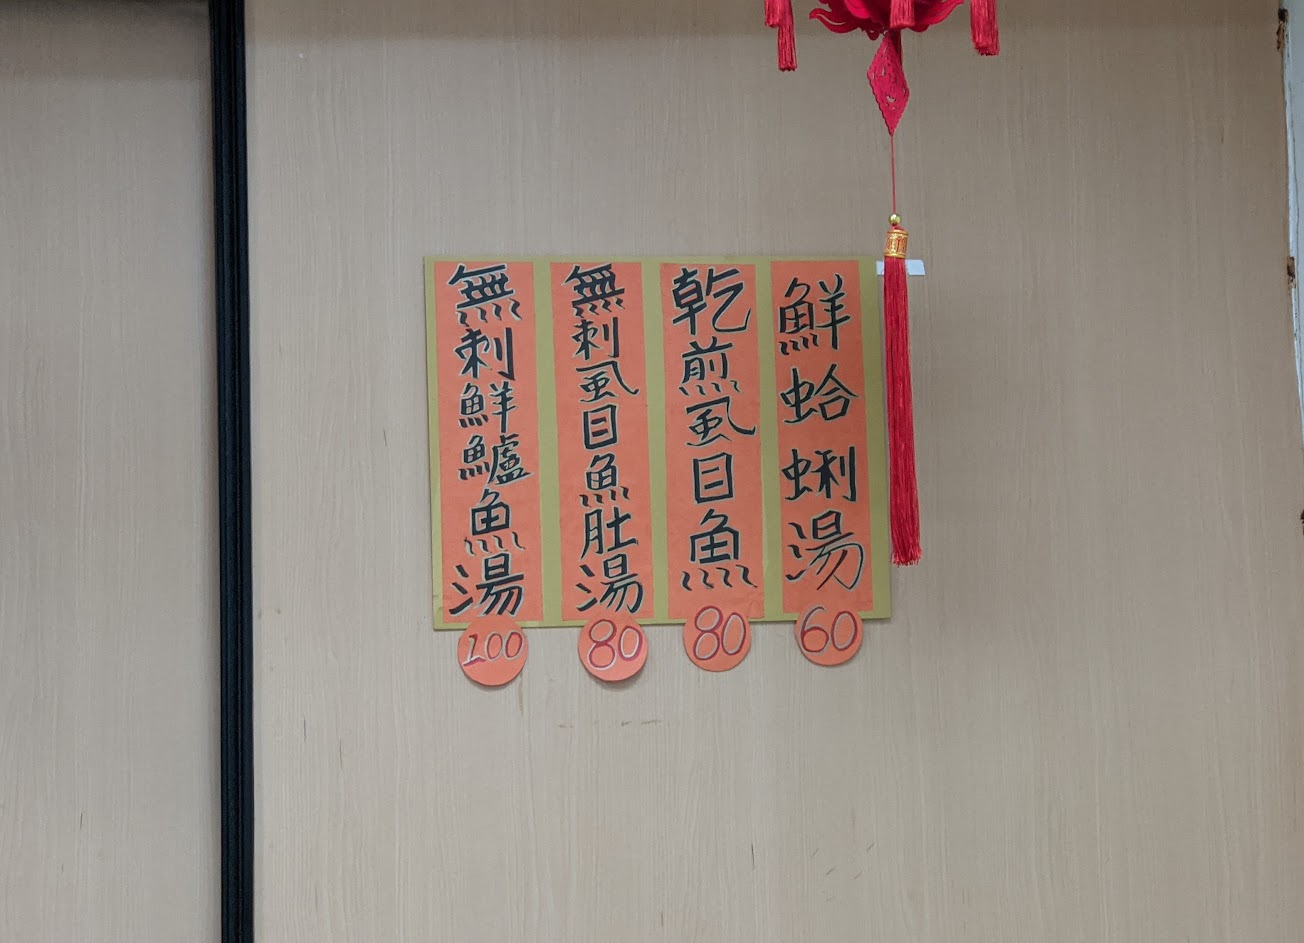 鮮蛤蜊湯
60
乾煎虱目魚
80
無刺虱目魚肚湯
80
無刺鮮鱸魚湯
100